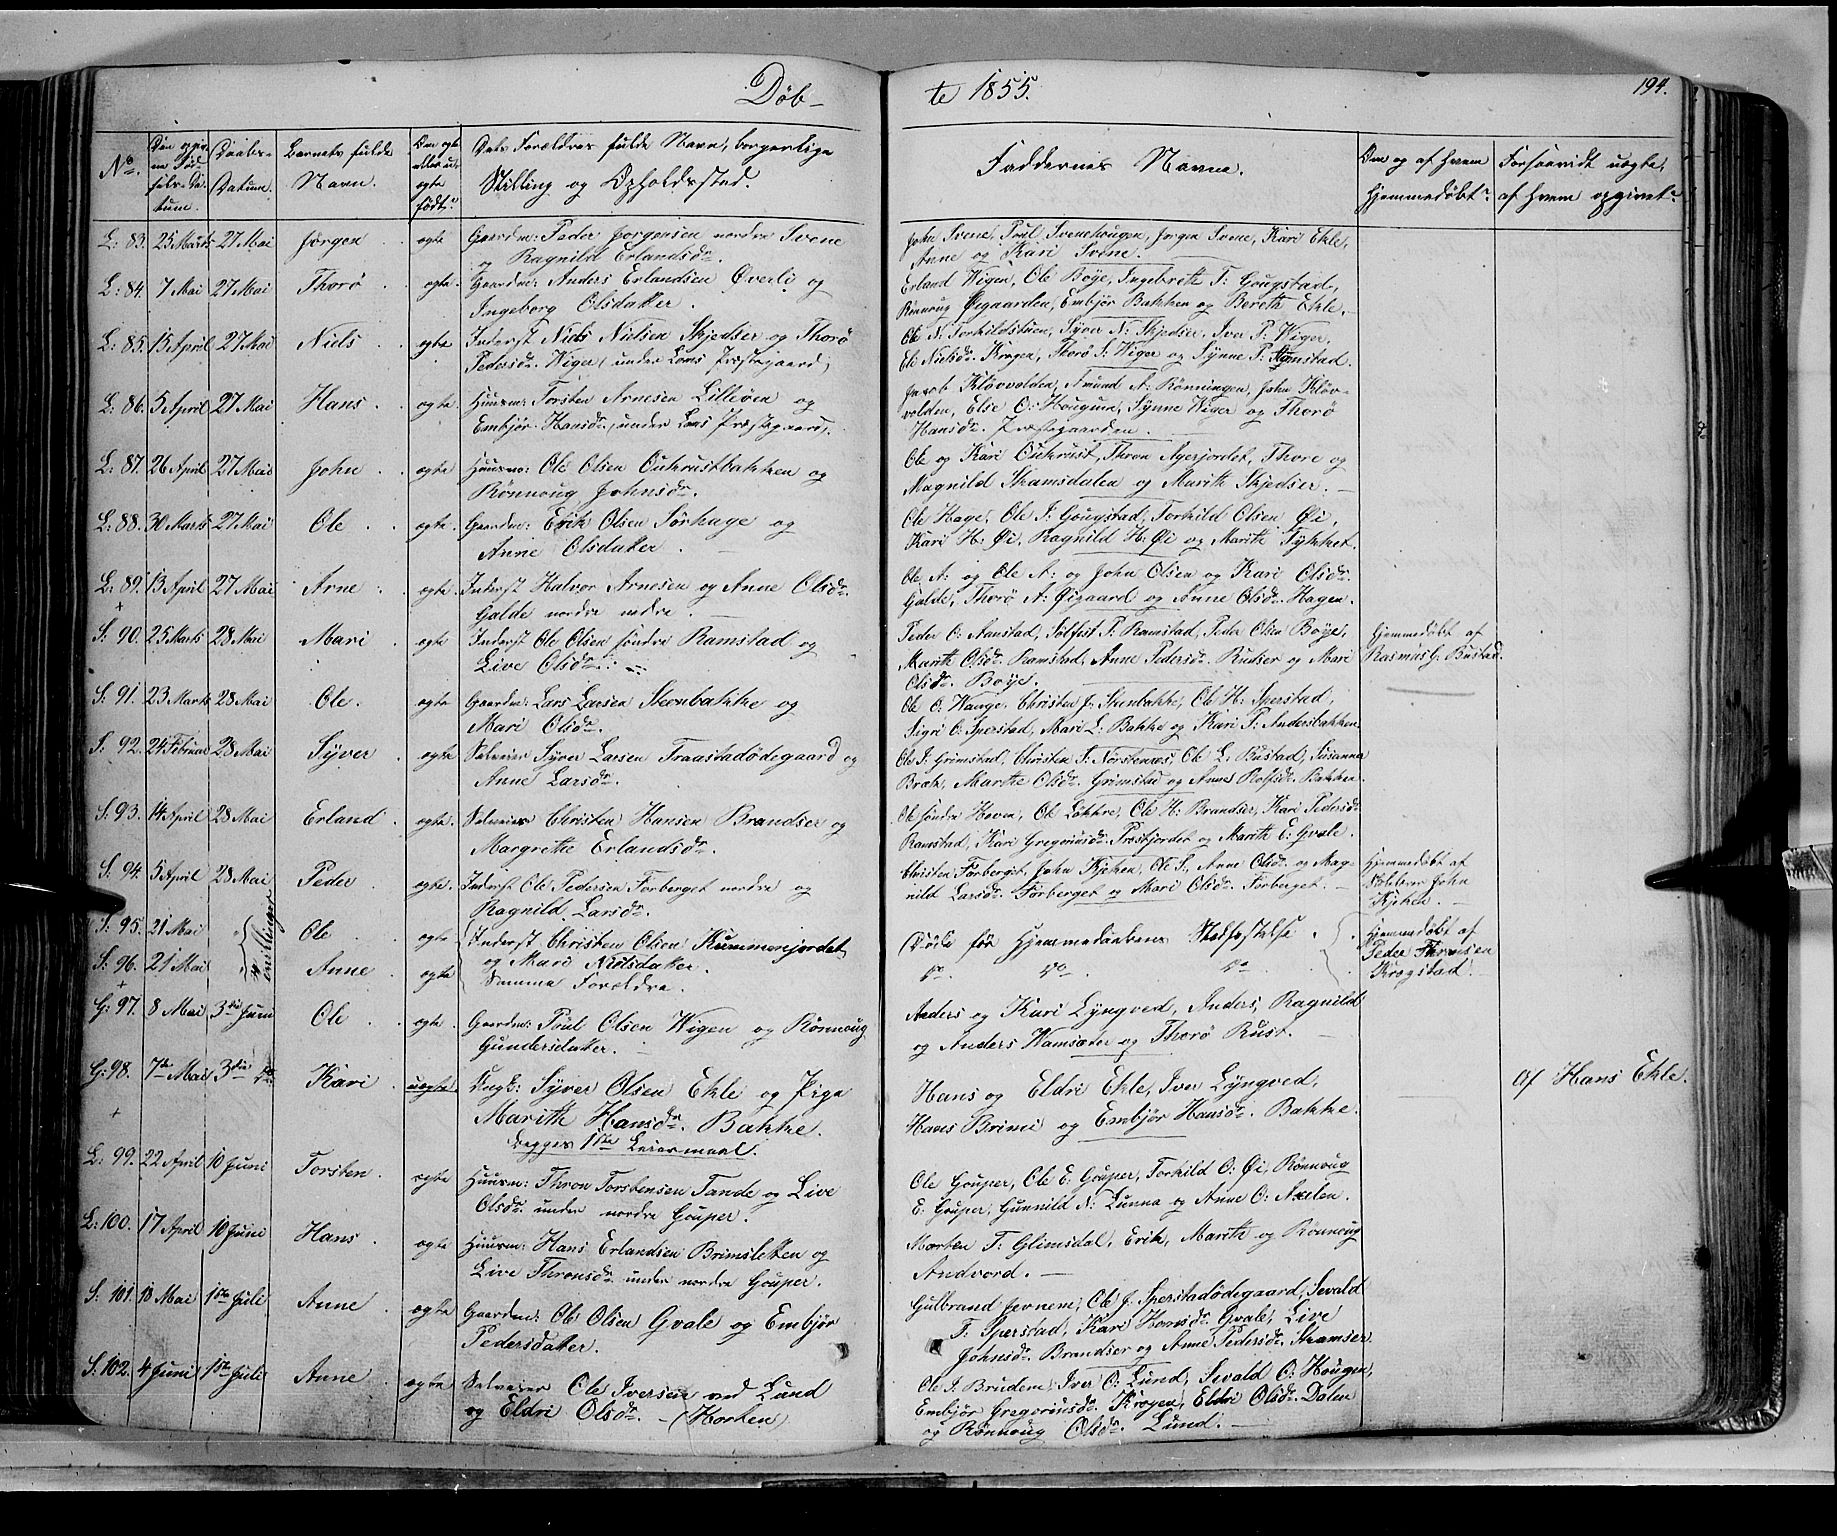 Døb-
te 1855.
194.
No.
Den opgivne Fødselsdatum.
Daabs-Datum.
Barnets fulde Navn.
Om ægte eller uægte født?
Dets Forældres fulde Navn, borgerlige Stilling og Opholdssted.
Faddernes Navne.
Om og af hvem hjemmedøbt?
Forsaavidt uægte, af hvem opgivet?
L: 83. 25 Marts 27 Mai Jørgen. ægte Gaardm: Peder Jørgensen nordre Svene
og Ragnild Erlandsdr.
John Svene, Poul Svenehougen, Jørgen Svene, Kari Ekle,
Anne og Kari Svene.
L: 84. 7 Mai 27 Mai Thorø. ægte. Gaardm: Anders Erlandsen Øverli og
Ingeborg Olsdatter.
Erland Wigen, Ole Bøye, Ingebreth T: Gougstad,
Rønnoug Øigaarden, Embjør Bakken og Bereth Ekle.
L: 85. 13 April 27 Mai Niels. ægte Inderst Niels Nielsen Skjedser og Thorø
Pedersdr. Wiger (under Loms Præstegaard)
Ole N: Torkildstuen, Syver N: Skjedser, Iver P. Wiger,
Ele Nielsdr. Krogen, Thorø S: Wiger og Synne P: Aanstad.
L: 86. 5 April 27 Mai Hans. ægte. Huusm: Torsten Arnesen Lilleøen og
Embjør Hansdr. (under Loms Præstegaard).
Jacob Kløvvolden, Amund A: Rønningen, John Kløv-
volden, Else O: Hougum, Synne Wiger og Thorø
Hansdr. Præstegaarden.
L: 87. 26 April 27 Mai John. ægte Huusm: Ole Olsen Ouhrustbakken og
Rønnoug Johnsdr.
Ole og Kari Ouhrust, Thron Agerjordet, Thore og
Magnild Skamsdalen og Marith Skjedser.
L: 88. 30 Marts 27 Mai Ole. ægte. Gaardm: Erik Olsen Sørhage og
Anne Olsdatter.
Ole Hage, Ole J: Gougstad, Torkild Olsen Øi,
Kari H: Øi, Ragnild H: Øi og Marith Tykket.
L: 89. 13 April 27 Mai Arne. ægte. Inderst Halvor Arnesen og Anne Olsdr.
Galde nordre nedre.
Ole A: og Ole A: og John Olsen og Kari Olsdr.
Galde, Thorø A: Øigaard og Anne Olsdr. Hagen.
S: 90. 25 Marts 28 Mai Mari. ægte Inderst Ole Olsen søndre Ramstad og
Live Olsdr.
Peder O: Aanstad, Sølfest P: Ramstad, Peder Olsen Bøye,
Marith Olsdr. Ramstad, Anne Pedersdr. Rudser og Mari
Olsdr. Bøye.
Hjemmedøbt af
Rasmus G: Bustad.
S: 91. 23 Marts 28 Mai Ole. ægte Gaardm: Lars Larsen Steenbakke og
Mari Olsdr.
Ole O. Wange, Christen J: Steenbakke, Ole H: Sperstad,
Sigri O: Sperstad, Mari L: Bakke og Kari P: Andersbakken.
S: 92. 24 Februar 28 Mai Syver. ægte Selveier Syver Larsen Fraastadødegaard og
Anne Larsdr.
Ole J. Grimstad, Christen T: Nørstenæs, Ole L: Bustad, Susanna
Bræk, Marthe Olsdr. Grimstad og Anne Rolfsdr. Bakken.
S: 93. 14 April 28 Mai Erland. ægte. Selveier Christen Hansen Brandser og
Margrethe Erlandsdr.
Ole søndre Hoven, Ole Løkkre, Ole H: Brandser, Kari Pedersdr.
Ramstad, Kari Gregoriusdr. Præstjordet og Marith E: Gvale.
S: 94. 5 April 28 Mai Peder. ægte. Inderst Ole Pedersen Forberget nordre og
Ragnild Larsdr.
Christen Forberget, John Kjeken, Ole S:, Anne Olsdr. og Mag-
nild Larsdr. Forberget og Mari Olsdr. Forberget.
Hjemmedøbt af
Skolelærer John
Kjeken.
S: 95. 21 Mai Tvillinger Ole. ægte Inderst Christen Olsen Kummenjordet
og Mari Nielsdatter.
Døde før Hjemmedaabens Stadfæstelse.
Hjemmedøbt af
Peder Thronsen
Krogstad.
S: 96. 21 Mai Anne ægte Samme Forældre.
do. do. do.
G: 97. 8 Mai 3die Juni Ole. ægte. Gaardm: Poul Olsen Wigen og Rønnoug
Gundersdatter.
Anders og Kari Lyngved, Anders, Ragnild
og Anders Wamsæter og Thorø Rust.
G: 98. 7de Mai 3die do. Kari. uægte. Ungk: Syver Olsen Ekle og Pige
Marith Hansdr. Bakke.
Begges 1ste Leiermaal.
Hans og Eldri Ekle, Iver Lyngved,
Hans Brimi og Embjør Hansdr. Bakke.
Af Hans Ekle.
L: 99. 22 April 10 Juni Torsten. ægte Huusm: Thron Torstensen Tande og Live
Olsdr. under nordre Gouper.
Ole Gouper, Ole E: Gouper, Torkild O: Øi, Rønnoug
E. Gouper, Gunnild N: Lunna og Anne O: Axelen.
L: 100. 17 April 10 Juni Hans. ægte Huusm: Hans Erlandsen Brimsletten og
Live Thronsdr. under nordre Gouper.
Morten T: Glimsdal, Erik, Marith og Rønnoug
Andvord.
S: 101. 18 Mai 1ste Juli Anne. ægte Gaardm: Ole Olsen Gvale og Embjør
Pedersdatter.
Gulbrand Jevnene, Ole J. Sperstadødegaard, Sevald
T. Sperstad, Kari Hansdr. Gvale, Live
Johnsdr. Brandser og Anne Pedersdr. Skamser.
S: 102. 4 Juni 1ste Juli Anne. ægte Selveier Ole Iversen ved Lund
og Eldri Olsdr. (Horten)
Ole J. Bruden, Iver O: Lund, Sevald O: Hougen,
Embjør Gregoriusdr. Krogen, Eldri Olsdr. Dalen
og Rønnoug Olsdr. Lund.